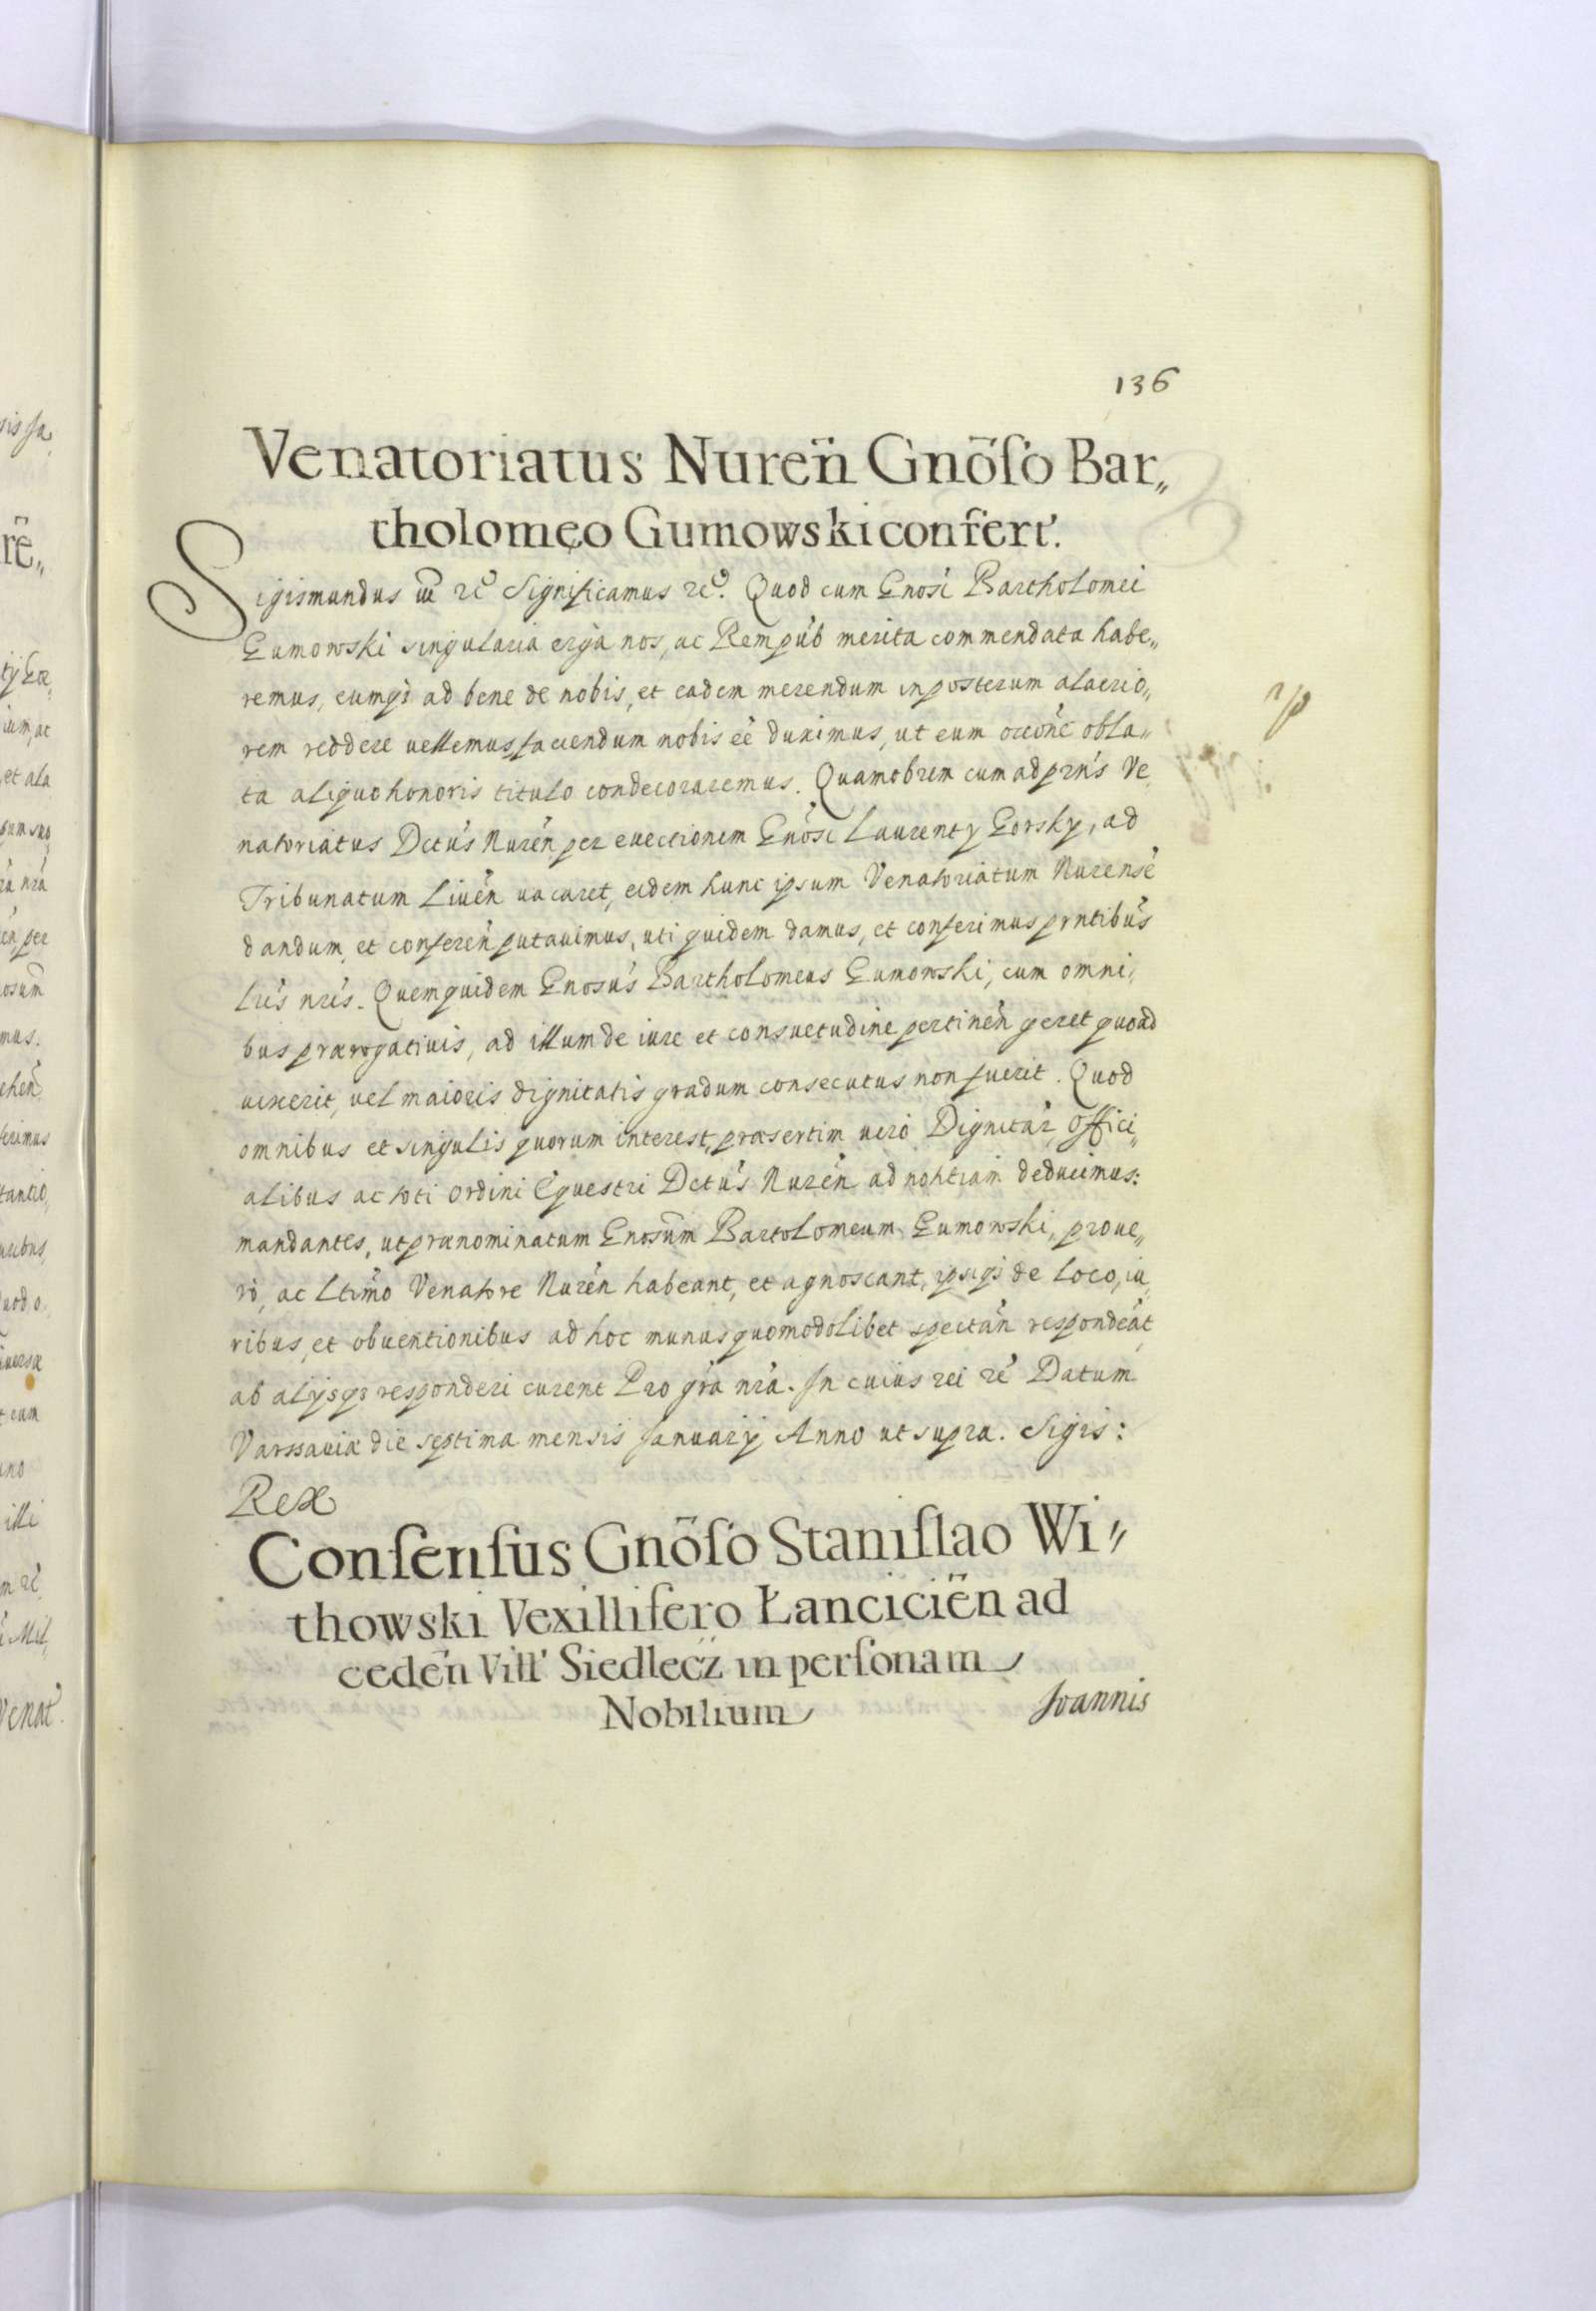 136
Venatoriatus Nureñ Gnõso Bar„
tholomęo Gumowski confert.
Sigismundus iii rc̃ Significamus rc̃. Quod cum Gnosi Bartholomei
Gumowski singularia erga nos, ac Rempub́ merita commendata habe„
remus, eumq; ad bene de nobis, et eadem merendum inposterum alacrio„
rem reddere uellemus, faciendum nobis eẽ duximus, ut eum occõne obla„
ta aliquo honoris titulo condecoraremus. Quamobrem cum ad prñs Ve
natoriatus Dctũs Nureñ per euectionem Gnõsi Laurenty Gorsky, ad
Tribunatum Liueñ uacaret, eidem hunc ipsum Venatoriatum Nurensẽ
dandum, et confereñ putauimus, uti quidem damus, et conferimus prntibũs
lrĩs nrĩs. Quem quidem Gnosũs Bartholomeus Gumowski, cum omni,
bus prærogatiuis, ad illum de iure et consuetudine pertineñ geret quoad
uixerit, uel maioris dignitatis gradum consecutus non fuerit. Quod
omnibus et singulis quorum interest, præsertim uerò Dignitar̃, Offici„
alibus ac toti ordini Equestri Dctũs Nureñ ad notitiam deducimus:
mandantes, ut prænominatum Gnosum̃ Bartolomeum Gumowski, pro ue„
rò, ac Ltimõ Venatore Nureñ habeant, et agnoscant, ipsiq; de loco, iu„
ribus, et obuentionibus ad hoc munus quomodolibet spectañ respondeãt,
ab alijsq; responderi curent Pro grã nrã. In cuius rei rc̃ Datum
Varssauiæ die septima mensis Januarij Anno ut supra. Sigis:
Rex
Consensus Gnõso Stanislao Wi„
thowski Vexillifero Łancicień ad
cedeñ Vill' Siedlecz in personam
Nobilium
Joannis